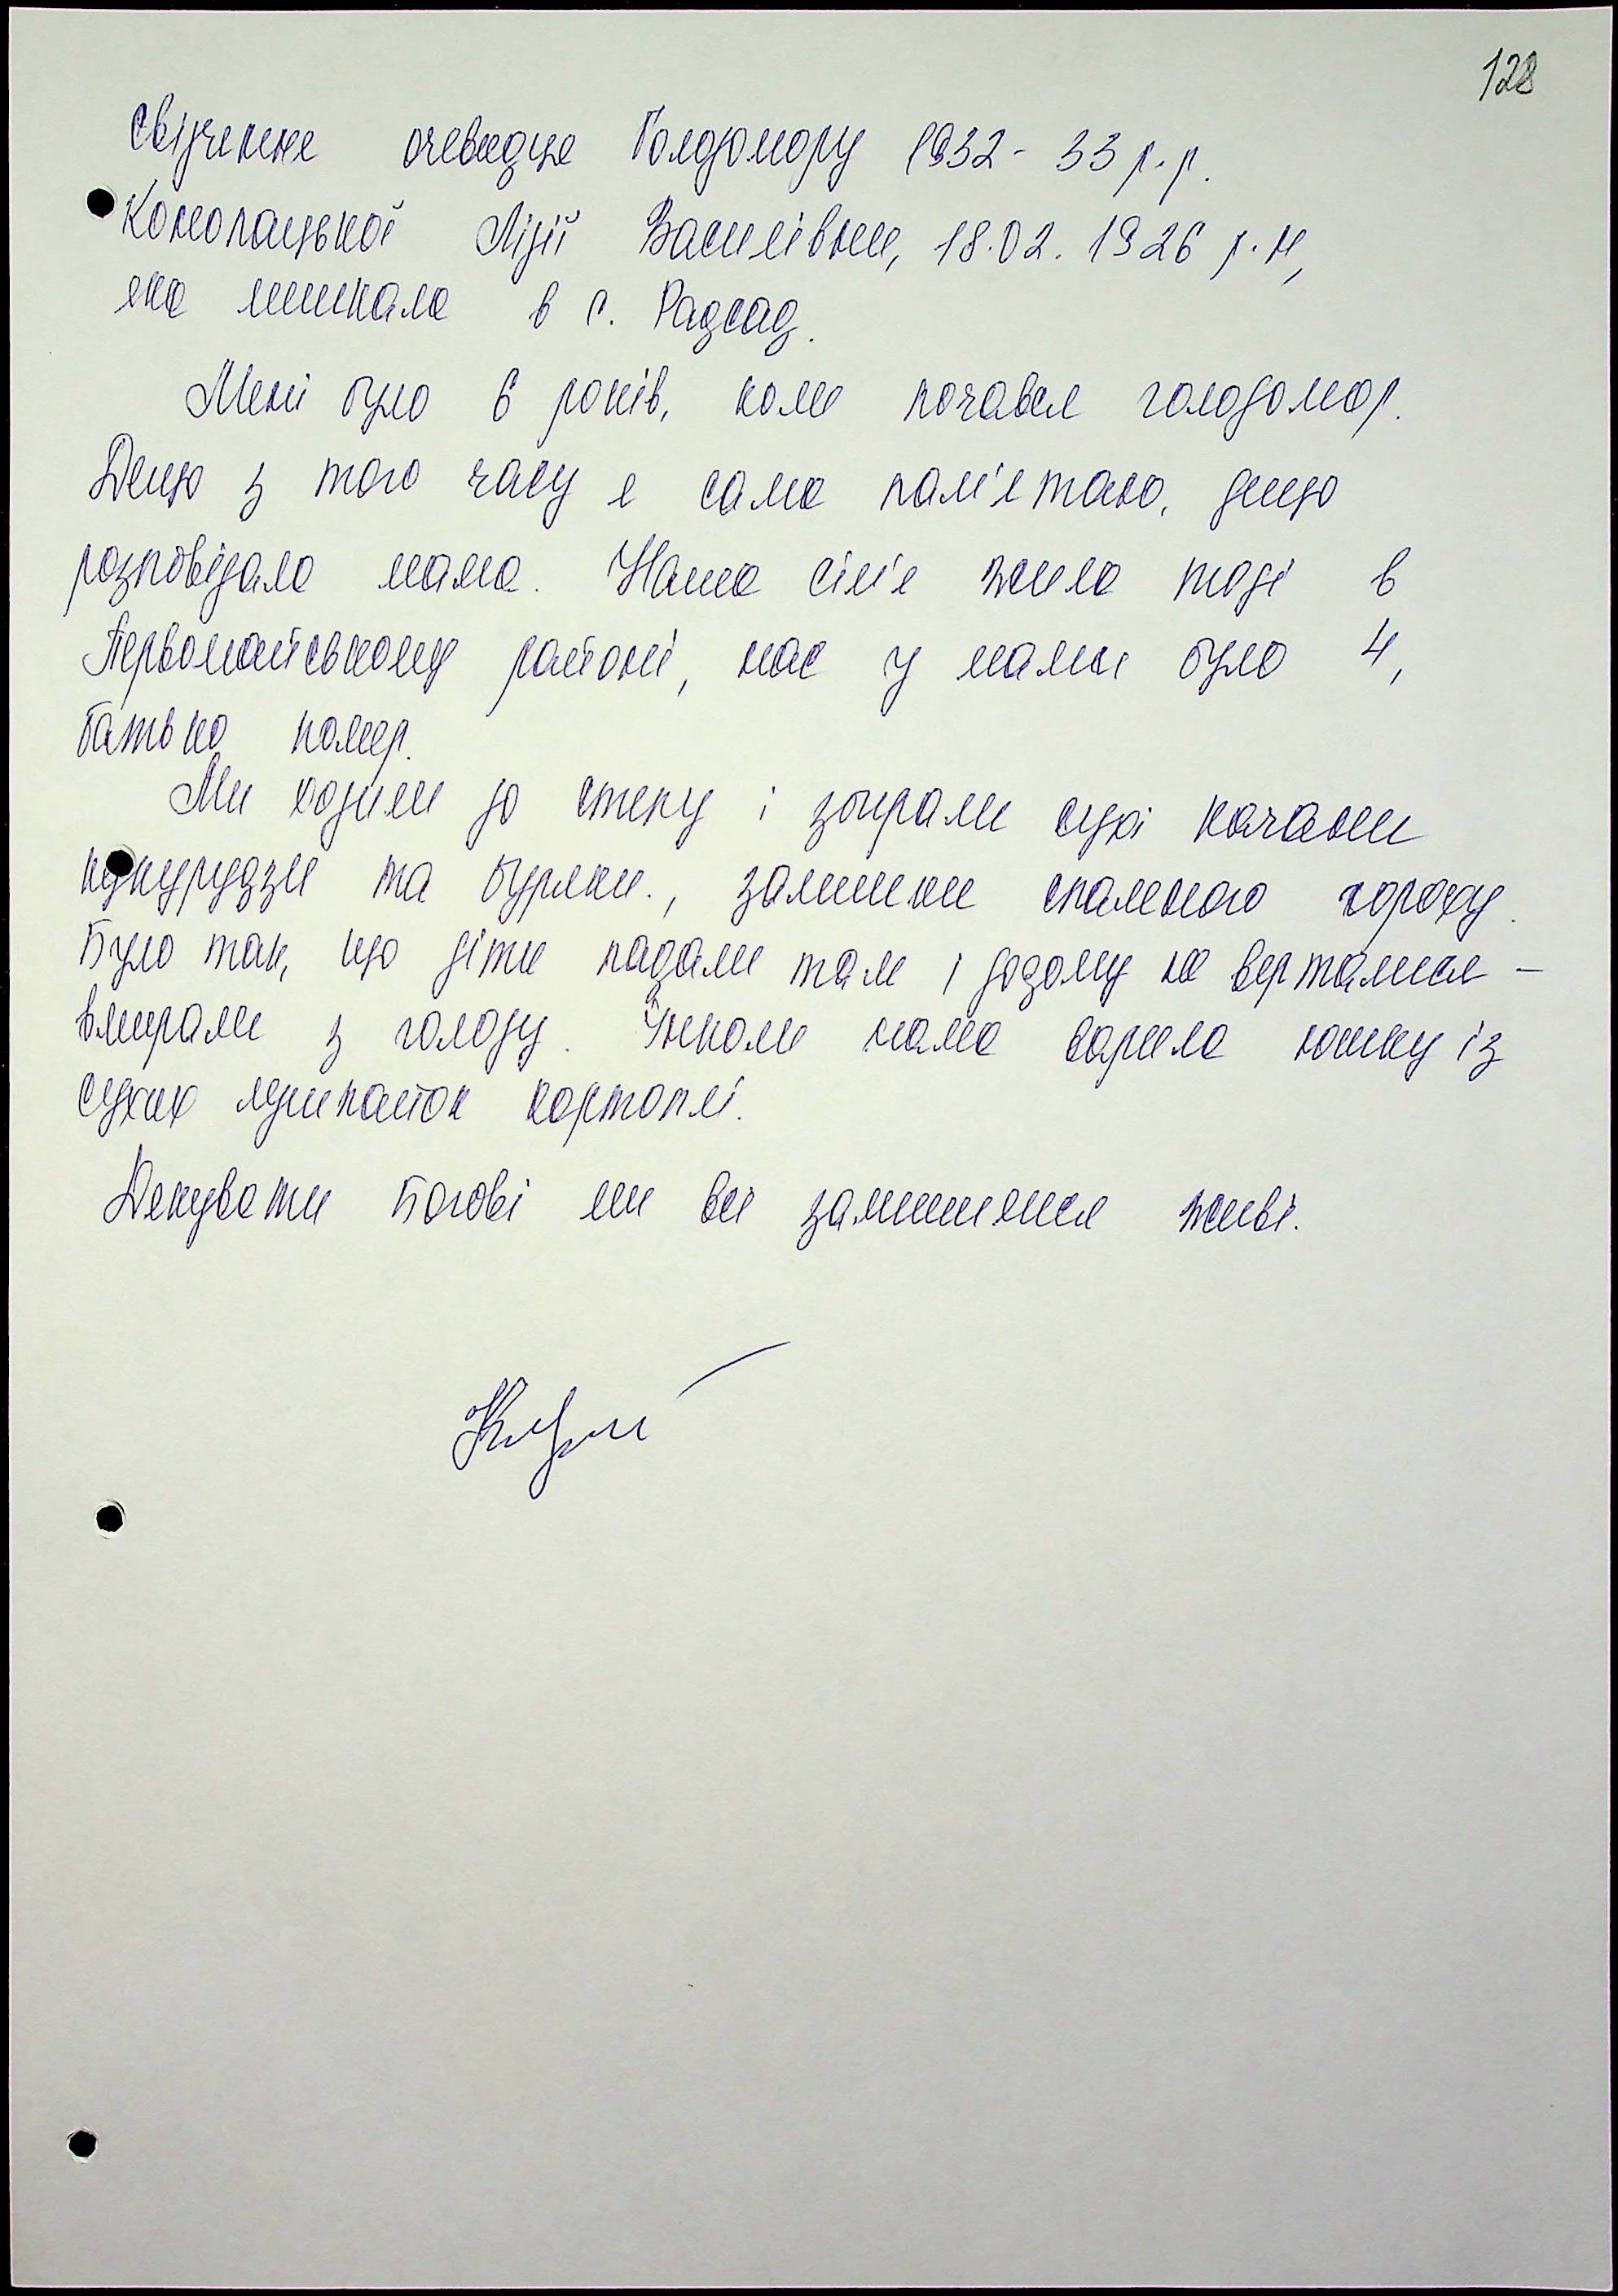 128
Свідчення очевидця Голодомору 1932 - 33 р.р.
Конопацької Лідії Василівни, 18.02.1926 р.н,
яка мешкала в с. Радсад.
Мені було 6 років, коли почався голодомор.
Дещо з того часу я сама пам'ятаю, дещо
розповідала мама. Наша сім'я жила тоді в
Первомайському районі, нас у мами було 4,
батько помер.
Ми ходили до степу і збирали сухі качани
кукурудзи та буряки., залишки спаленого гороху.
Було так, що діти падали там і додому не вертались -
вмирали з голоду. Інколи мама варила юшку із
сухих лушпайок картоплі.
Дякувати Богові ми всі залишилися живі.